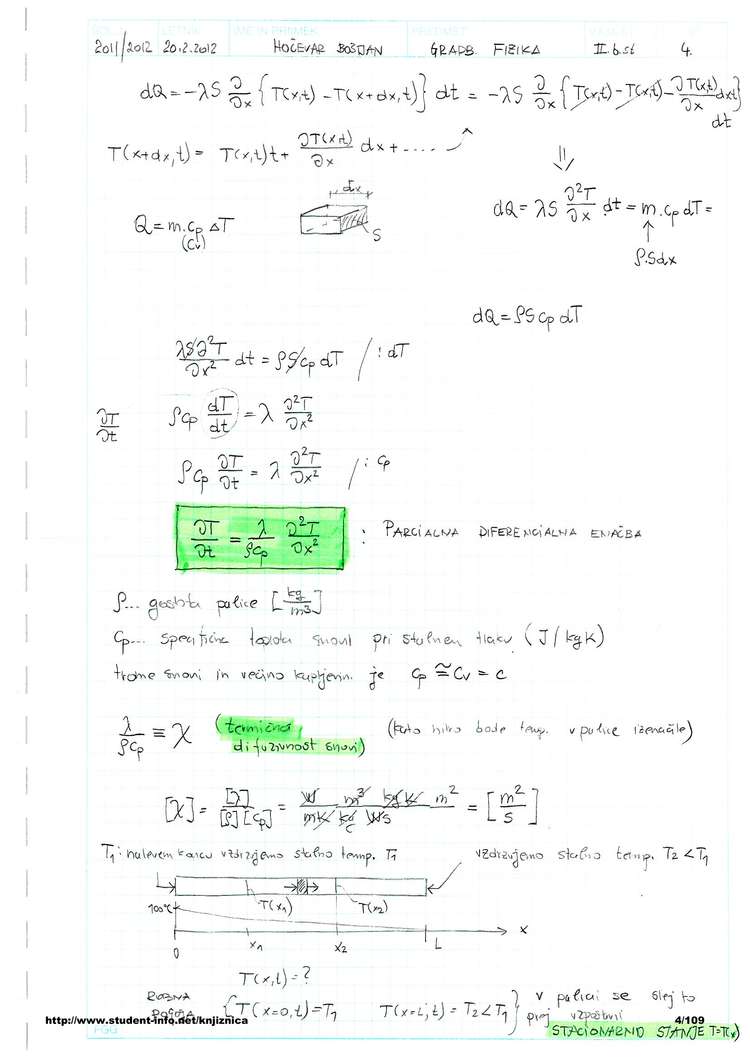 2011/2012 20.2.2012 HOČEVAR BOŠTJAN GRADB. FIZIKA II.b.st 4.
dQ = -λS ∂/∂x {T(x,t) - T(x+dx,t)} dt = -λS ∂/∂x {T(x,t) - T(x,t) - ∂T(x,t)/∂x dx} dt
T(x+dx,t) = T(x,t)t + ∂T(x,t)/∂x dx + ....
⇓
dx
dQ = λS ∂²T/∂x dt = m.cp dT =
Q = m.cp ΔT
(Cv)
S
↑
ρ.Sdx
dQ = ρS cp dT
λS∂²T/∂x² dt = ρS cp dT /: dT
∂T/∂t ρcp dT/dt = λ ∂²T/∂x²
ρcp ∂T/∂t = λ ∂²T/∂x² /: cp
∂T/∂t = λ/ρcp ∂²T/∂x² : PARCIALNA DIFERENCIALNA ENAČBA
ρ... gostota palice [kg/m³]
cp... specifična toplota snovi pri stalnem tlaku (J/kgK)
snovi in večino je cp ≅ cv = c
λ/ρcp ≡ χ (termična difuzivnost snovi) (kako hitro bodo temp. v palice izenačile)
[χ] = [λ]/[ρ][cp] = W m³ kg K m²/mK kg Ws = [m²/s]
T₁: na levem koncu vzdržujemo stalno temp. T₁ vzdržujemo stalno temp. T₂ < T₁
T(x₁) T(x₂)
100°C
0 x₁ x₂ L x
T(x,t) = ?
ROBNA POGOJA {T(x=0,t) = T₁ T(x=L,t) = T₂ < T₁} v palici se slej ko prej vzpostavi
STACIONARNO STANJE T=T(x)
http://www.student-info.net/knjiznica 4/109